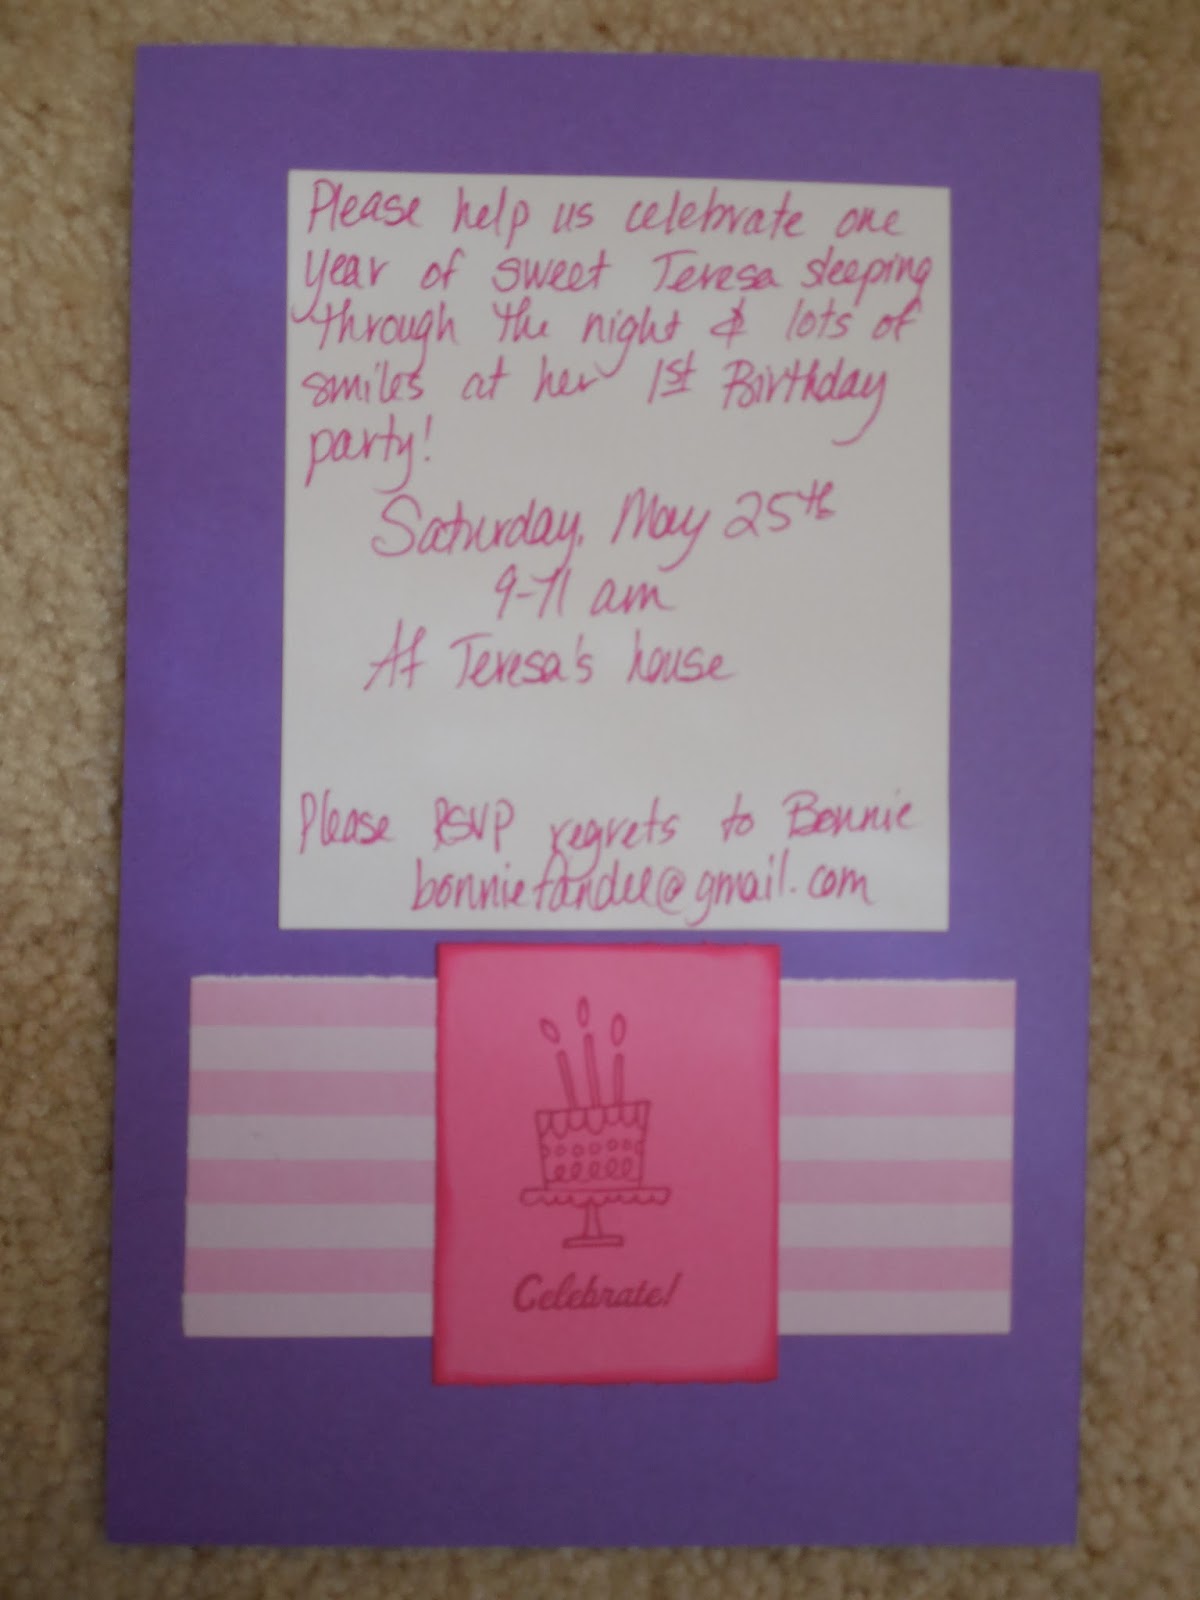 Please help us celebrate one
year of sweet Teresa sleeping
through the night & lots of
smiles at her 1st Birthday
party!
Saturday, May 25th
9-11 am
At Teresa's house
Please RSVP regrets to Bonnie
bonniefandel@gmail.com
Celebrate!